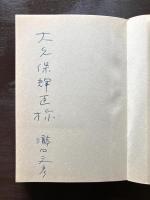 大久保輝臣様
瀧口三彦